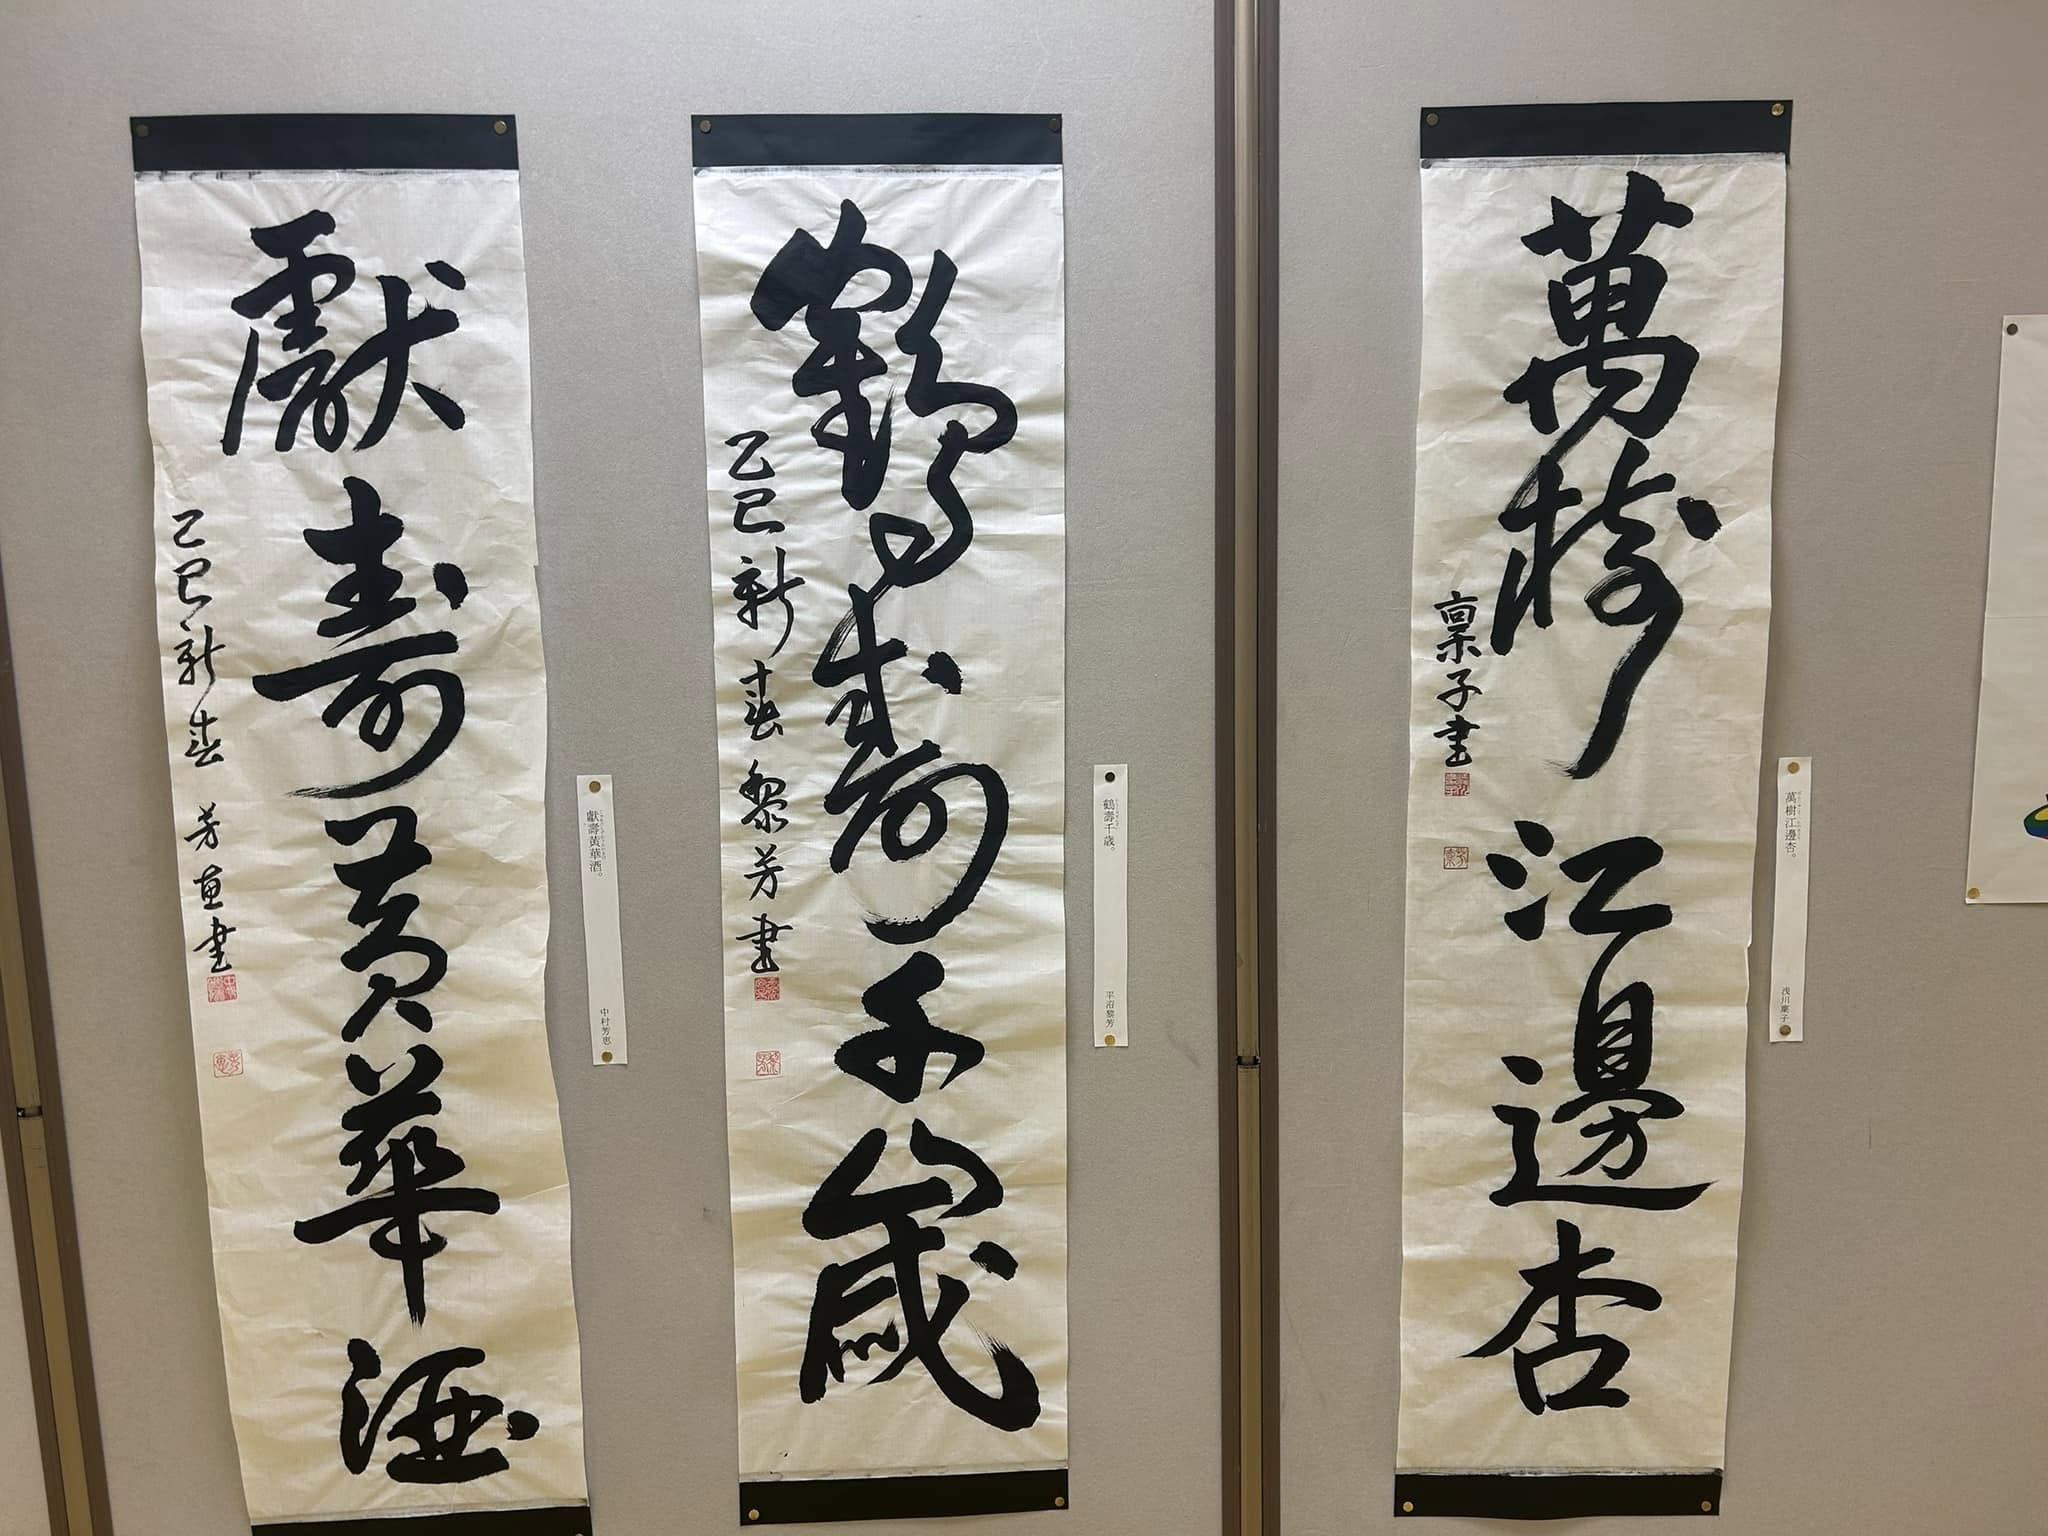 萬樹江邊杏
稟子書
萬樹江邊杏。
浅川稟子
鶴壽千歳
乙巳新春 黎芳書
鶴壽千歳。
平沼黎芳
獻壽黄華酒
乙巳新春 芳恵書
獻壽黄華酒。
中村芳恵